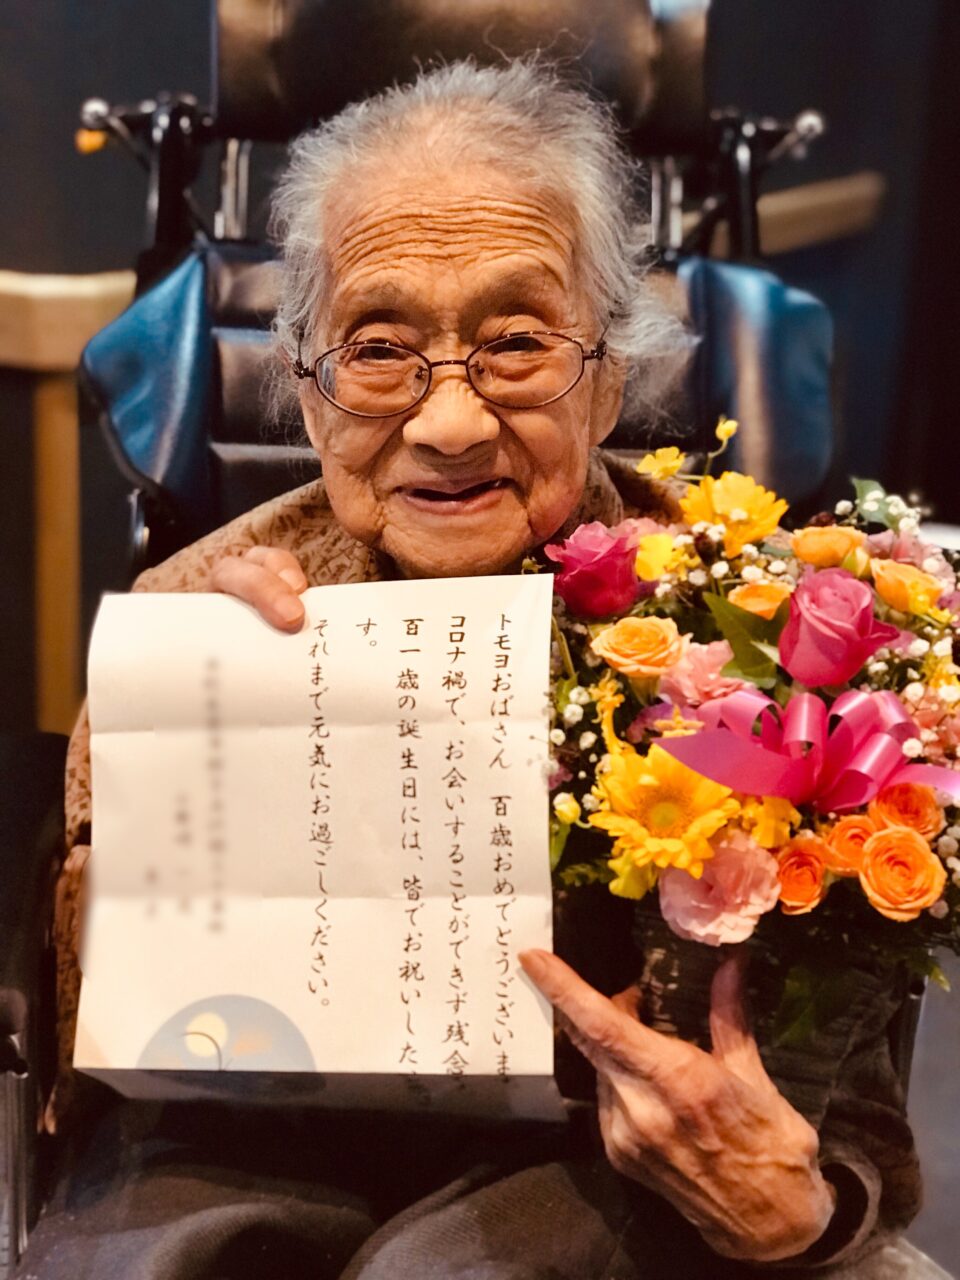 トモヨおばさん　百歳おめでとうございま
コロナ禍で、お会いすることができず残念
百一歳の誕生日には、皆でお祝いした
す。
それまで元気にお過ごしください。